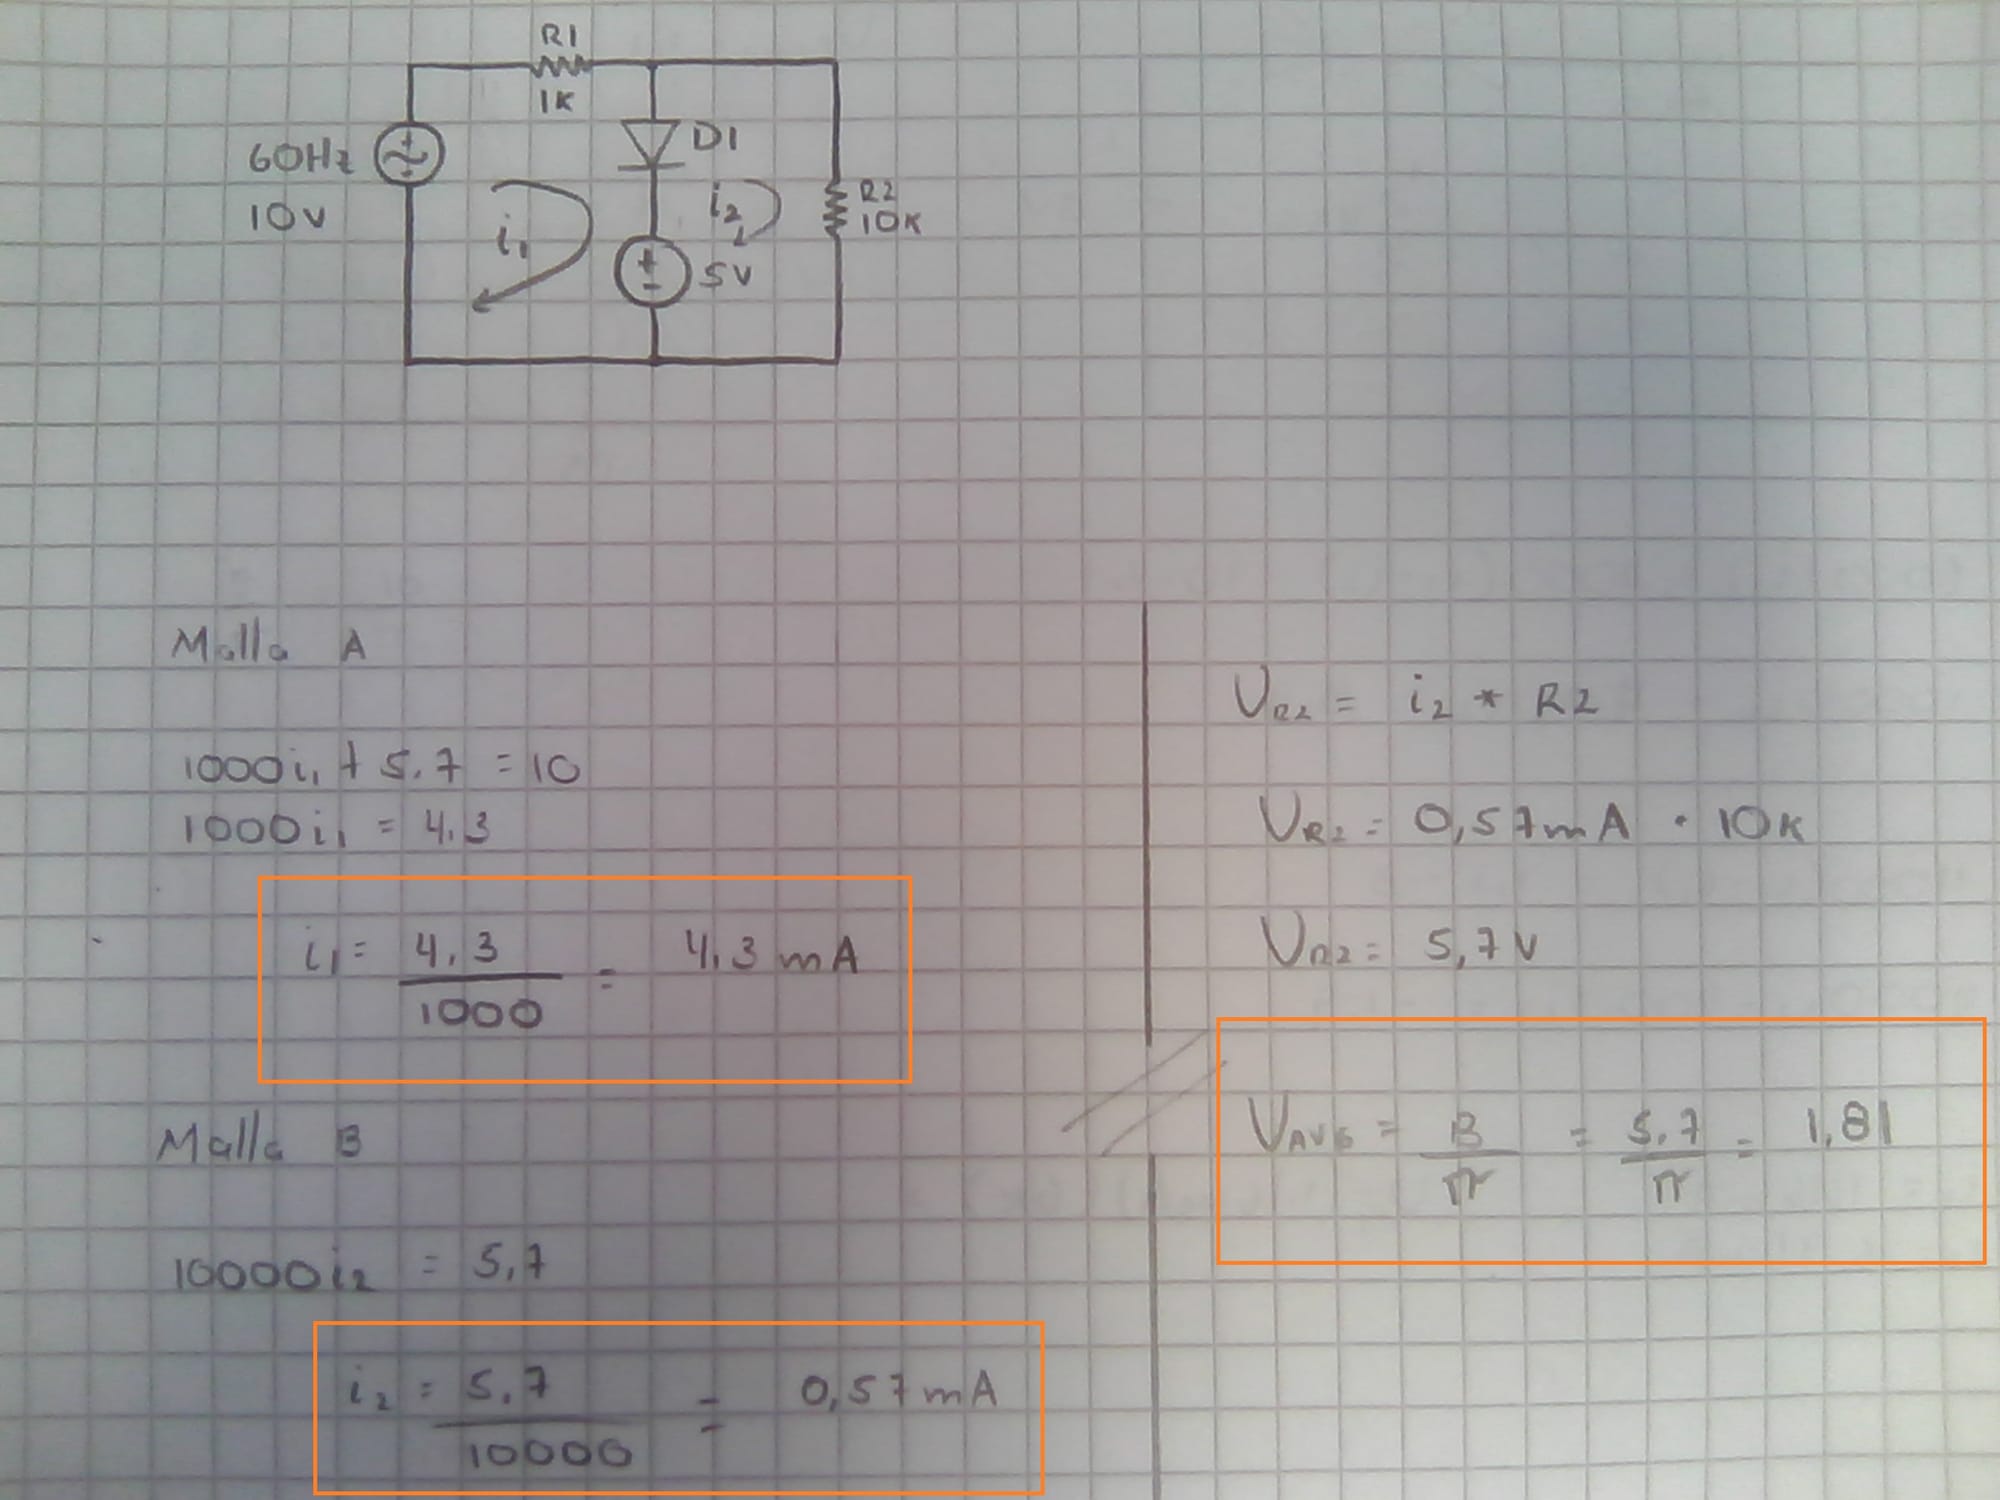 R1
1K
60Hz
10V
D1
i1
i2
R2
10K
5V
Malla A
1000i1 + 5.7 = 10
1000i1 = 4.3
i1 = 4.3 / 1000 = 4.3 mA
Malla B
10000i2 = 5,7
i2 = 5.7 / 10000 = 0,57mA
VR2 = i2 * R2
VR2 = 0,57mA · 10K
VR2 = 5,7V
VAVG = B / π = 5.7 / π = 1,81